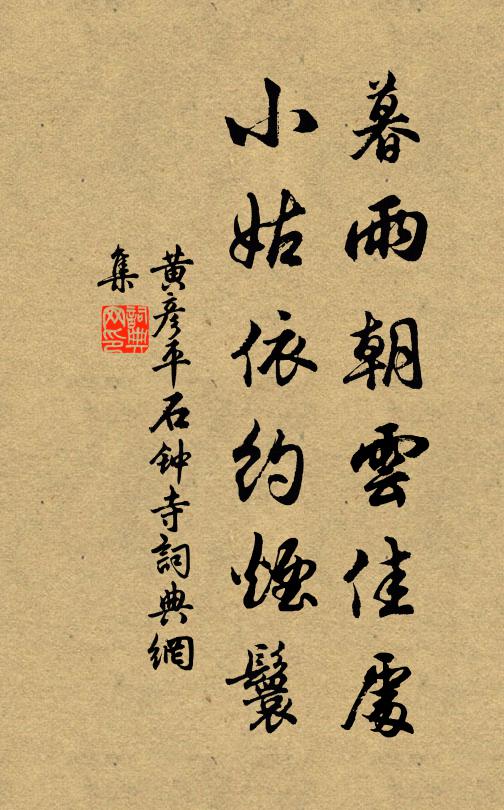 暮雨朝雲佳處
小姑依約煙鬟
黃彦平石钟寺詞典網
集
詞典網印